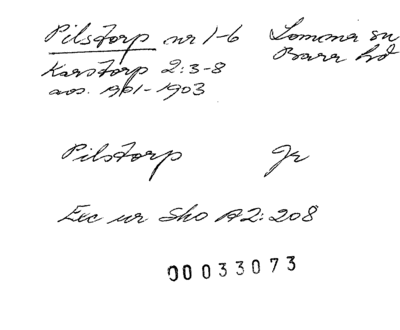 Pilstorp nr 1-6 Lomma sn
Karstorp 2:3-8 Bara hd
avs. 1901-1903
Pilstorp Jr
Exc ur Sho A2:208
00033073